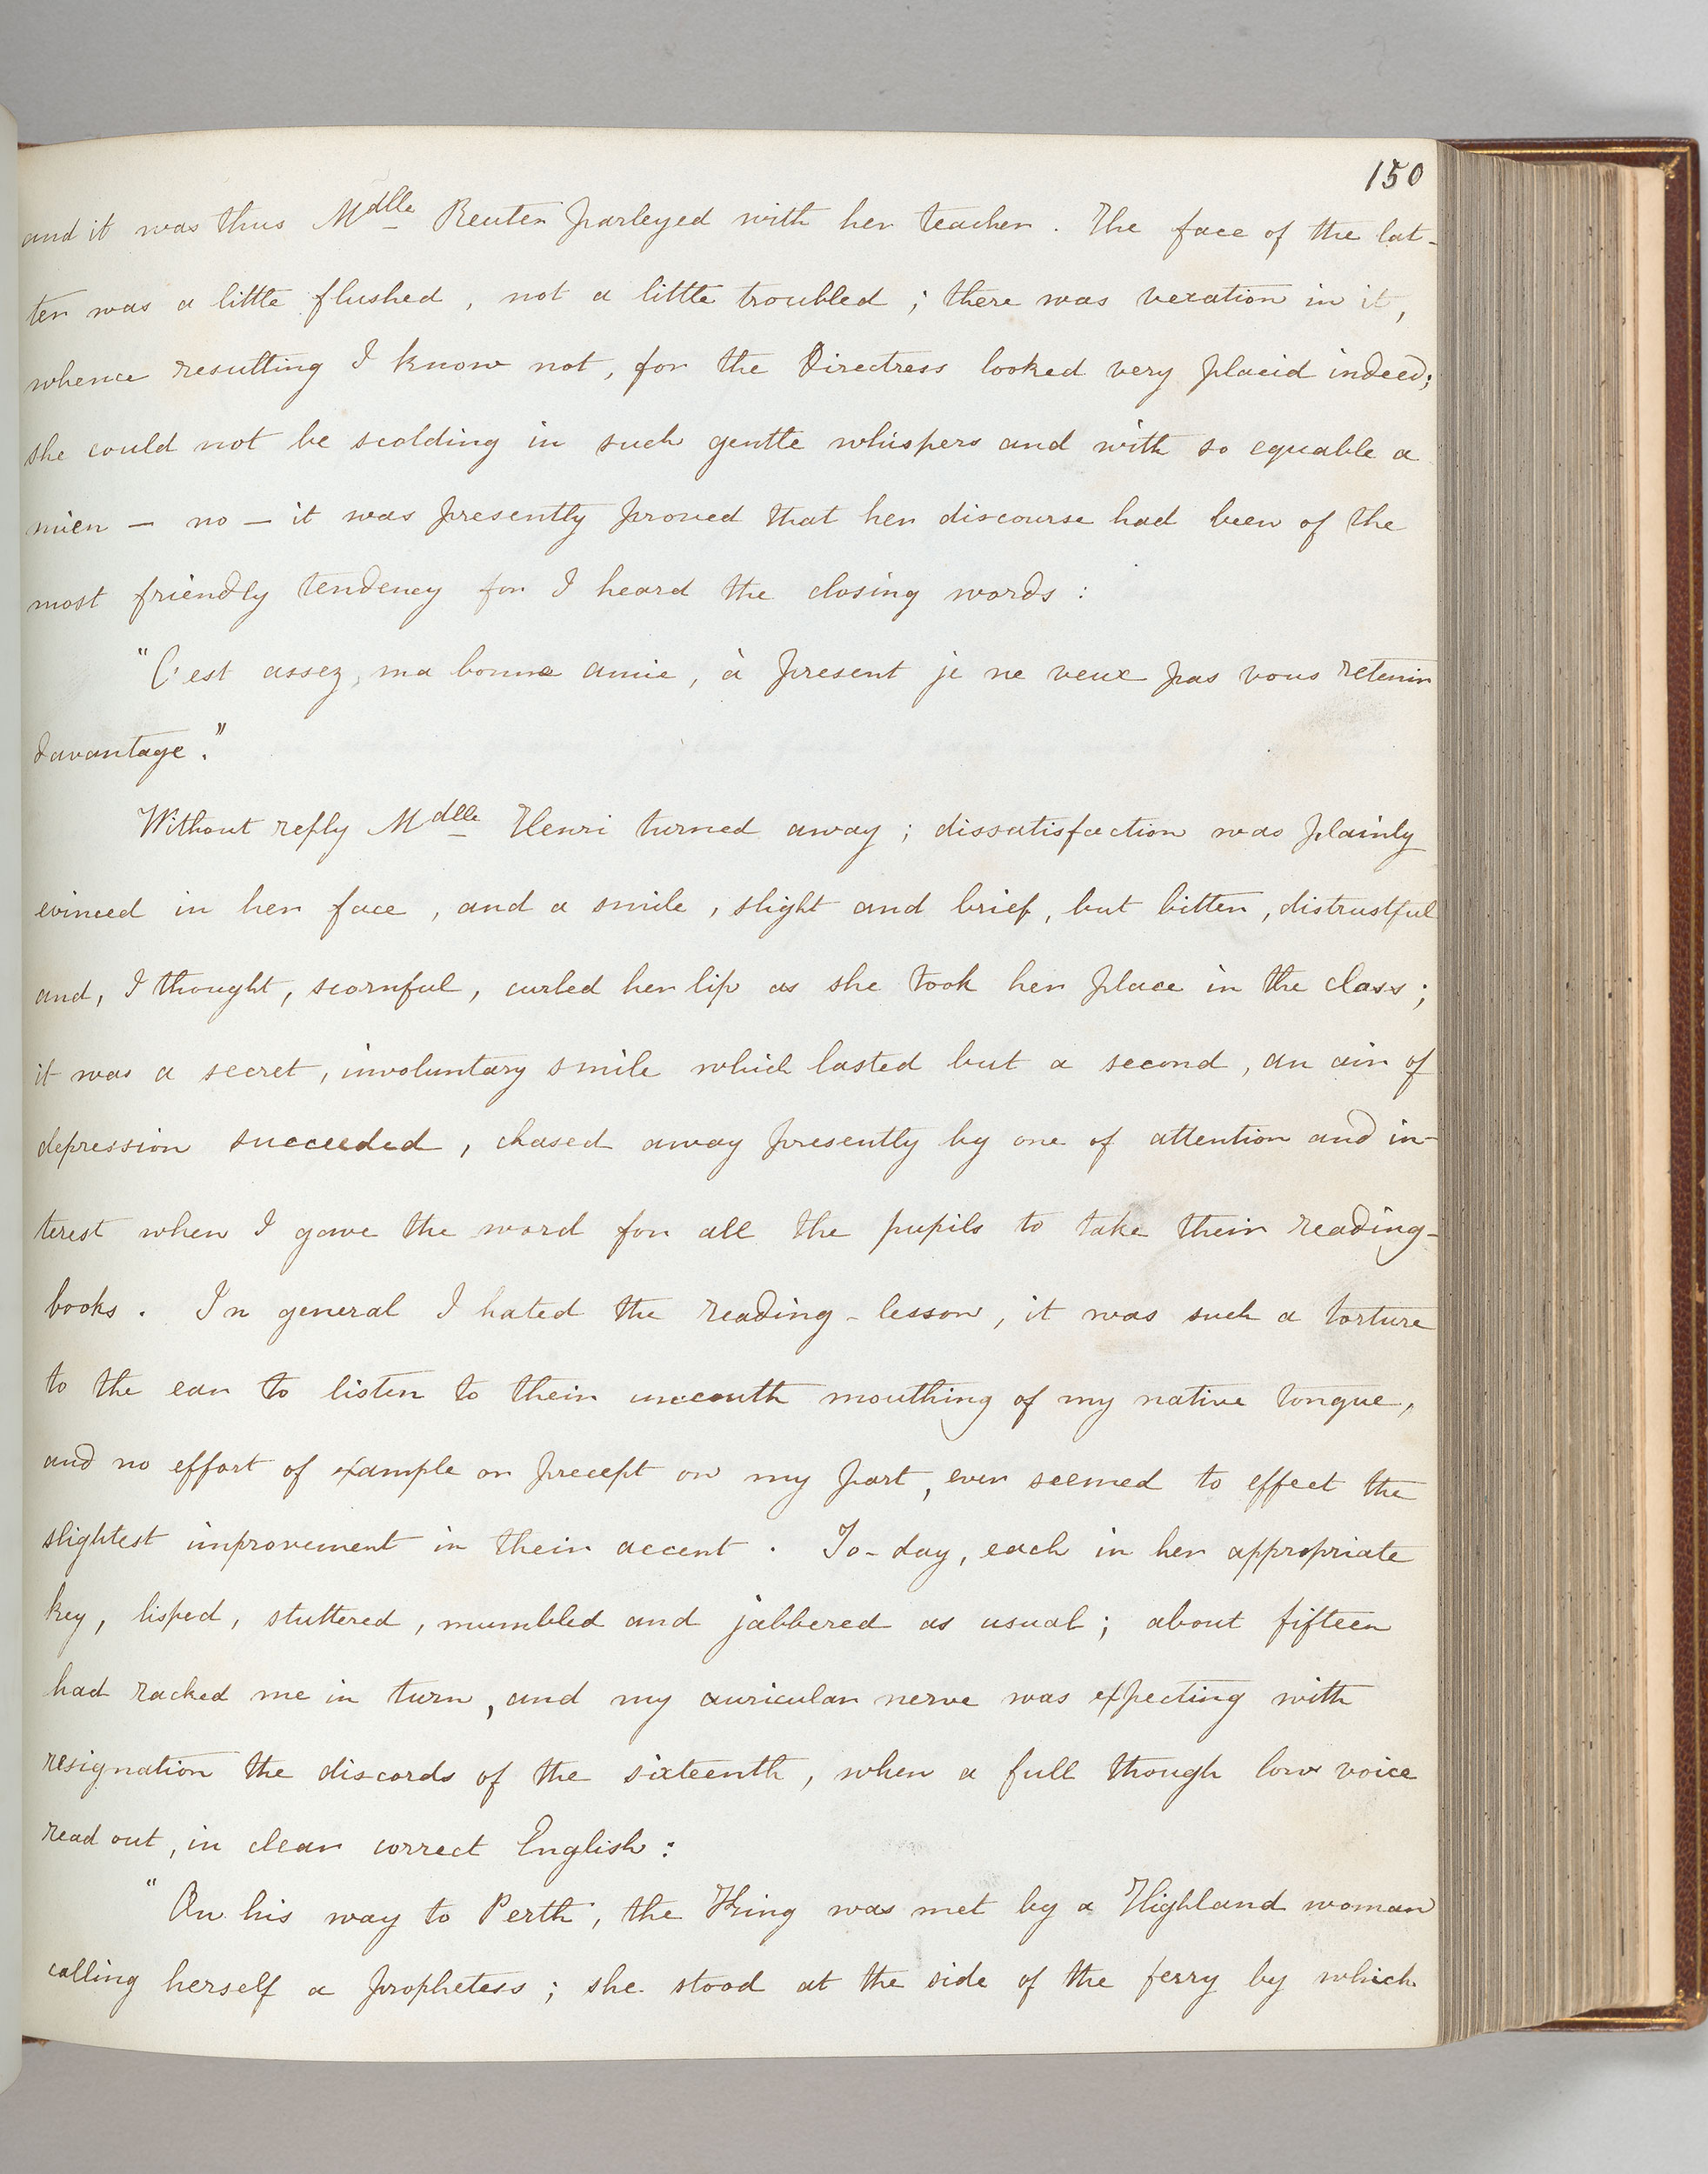 150
and it was thus Mdlle Reuter parleyed with her teacher. The face of the lat-
ter was a little flushed, not a little troubled; there was vexation in it,
whence resulting I know not, for the Directress looked very placid indeed;
she could not be scolding in such gentle whispers and with so equable a
mien — no — it was presently proved that her discourse had been of the
most friendly tendency for I heard the closing words:
"C'est assez, ma bonne amie, à present je ne veux pas vous retenir
davantage."
Without reply Mdlle Henri turned away; dissatisfaction was plainly
evinced in her face, and a smile, slight and brief, but bitter, distrustful
and, I thought, scornful, curled her lip as she took her place in the class;
it was a secret, involuntary smile which lasted but a second, an air of
depression succeeded, chased away presently by one of attention and in-
terest when I gave the word for all the pupils to take their reading-
books. In general I hated the reading-lesson, it was such a torture
to the ear to listen to their uncouth mouthing of my native tongue,
and no effort of example or precept on my part, ever seemed to effect the
slightest improvement in their accent. To-day, each in her appropriate
key, lisped, stuttered, mumbled and jabbered as usual; about fifteen
had racked me in turn, and my auricular nerve was expecting with
resignation the discords of the sixteenth, when a full though low voice
read out, in clear correct English:
"On his way to Perth, the King was met by a Highland woman
calling herself a prophetess; she stood at the side of the ferry by which